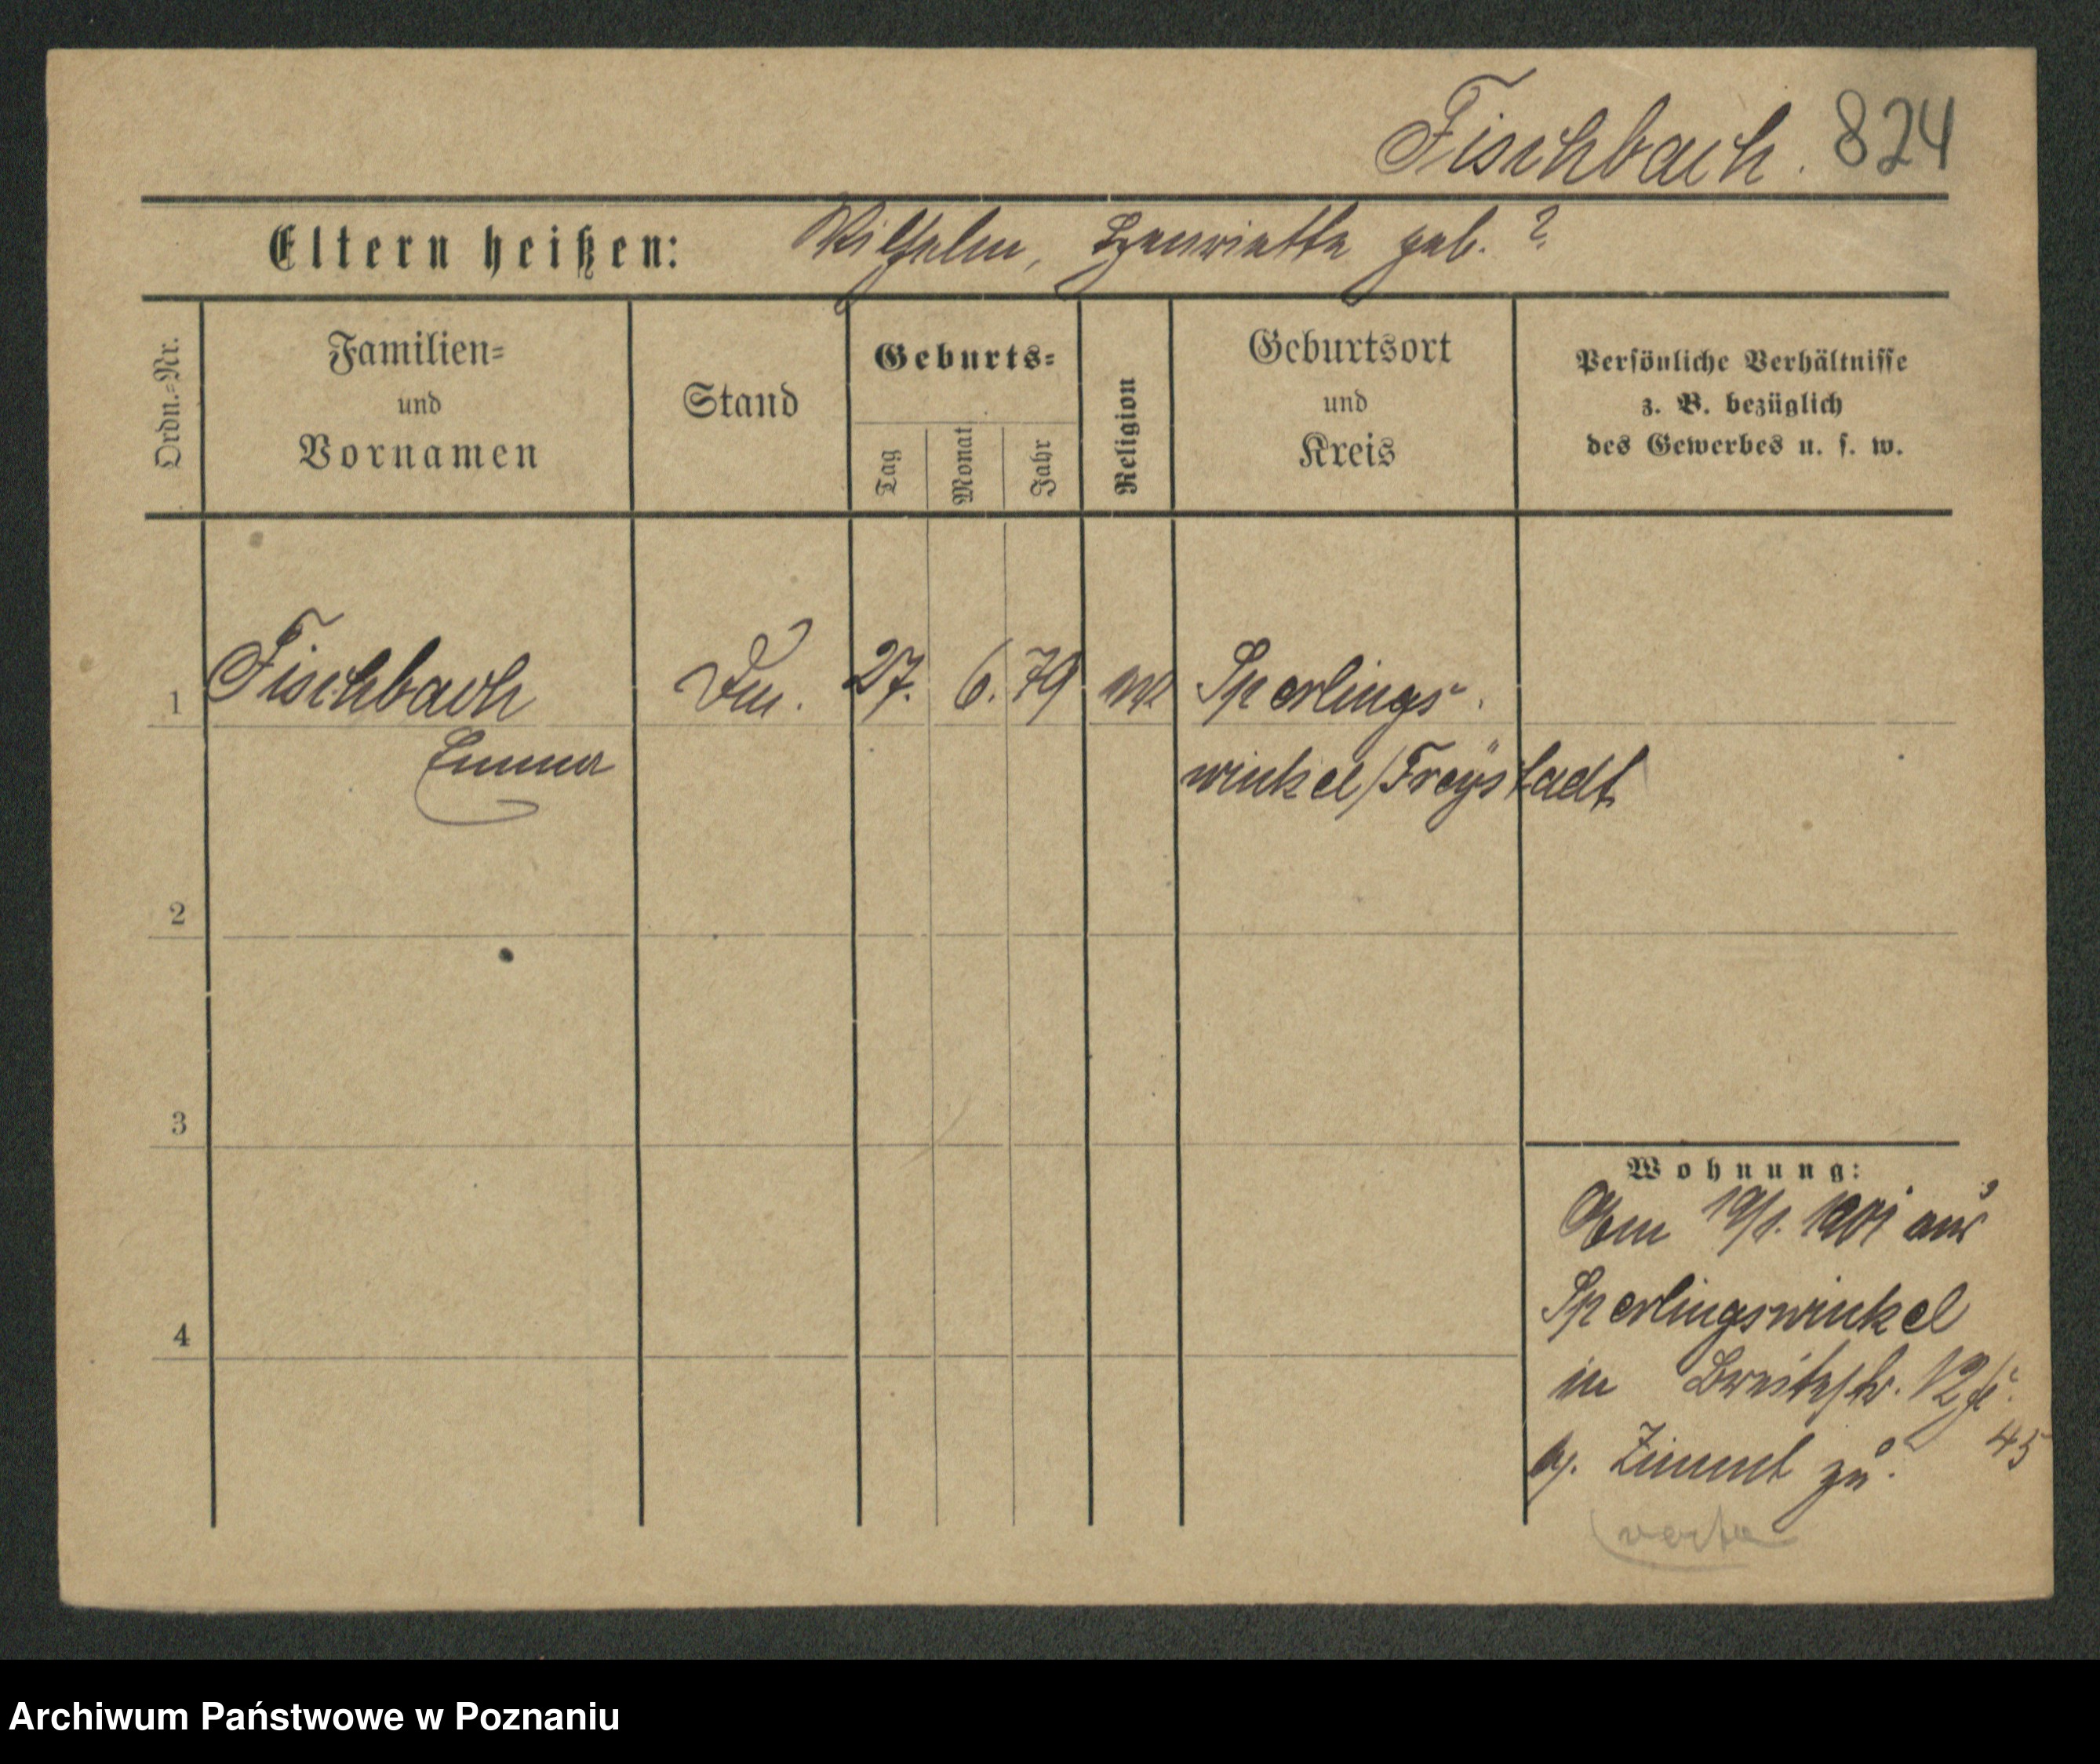 Fischbach. 824
Eltern heißen: Wilhelm, Henriette geb. ?
Ordn.=Nr.
Familien=
und
Vornamen
Stand
Geburts=
Tag
Monat
Jahr
Religion
Geburtsort
und
Kreis
Persönliche Verhältnisse
z. B. bezüglich
des Gewerbes u. s. w.
1 Fischbach 27. 6. 79 Sperlings-
Emma winkel/Freystadt
2
3
4
Wohnung:
Am 19/1. 1901 aus
Sperlingswinkel
in Breitestr. 12
45
Zimmt zu.
Archiwum Państwowe w Poznaniu